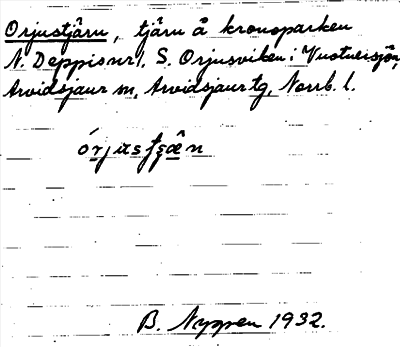 Orjustjärn, tjärn å kronoparken
N. Deppis nr 1. S. Orjusviken i Vuotnersjön,
Arvidsjaur sn, Arvidsjaur tg, Norrb. l.
órjustȿæ̂n
B. Nyppen 1932.